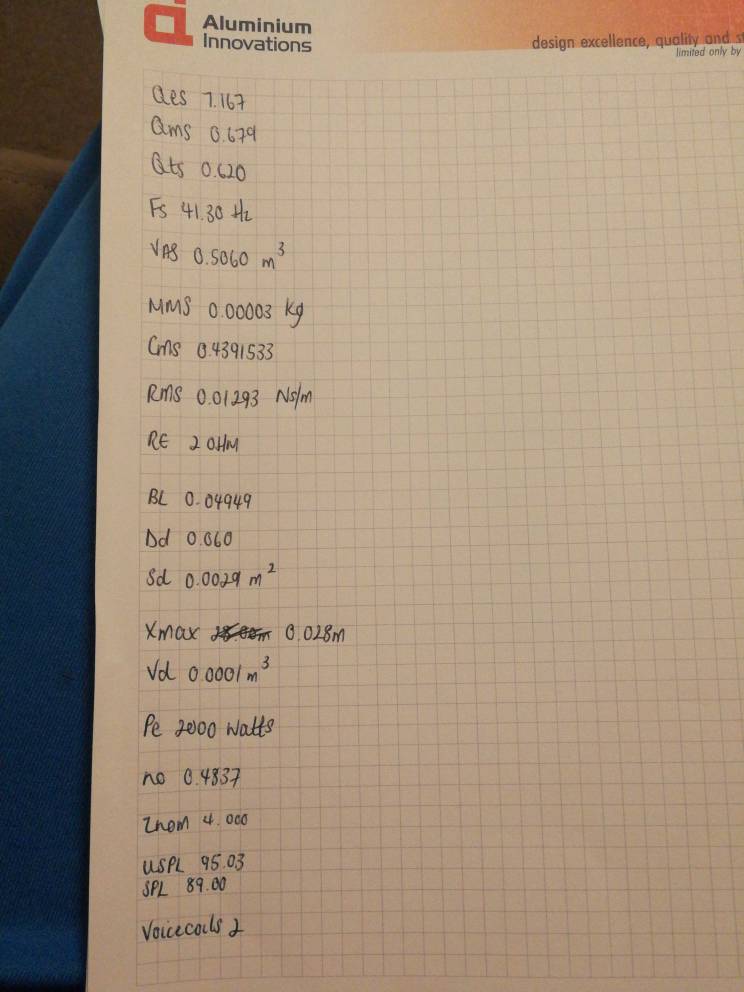 Aluminium
Innovations
design excellence, quality and st
limited only by
Qes 7.167
Qms 0.679
Qts 0.620
Fs 41.30 Hz
VAS 0.5060 m³
MMS 0.00003 Kg
Cms 0.4391533
RMS 0.01293 Ns/m
RE 2 OHM
BL 0.04949
Dd 0.060
Sd 0.0029 m²
Xmax 0.028m
Vd 0.0001 m³
Pe 2000 Watts
no 0.4837
Znom 4.000
USPL 95.03
SPL 89.00
Voicecoils 2